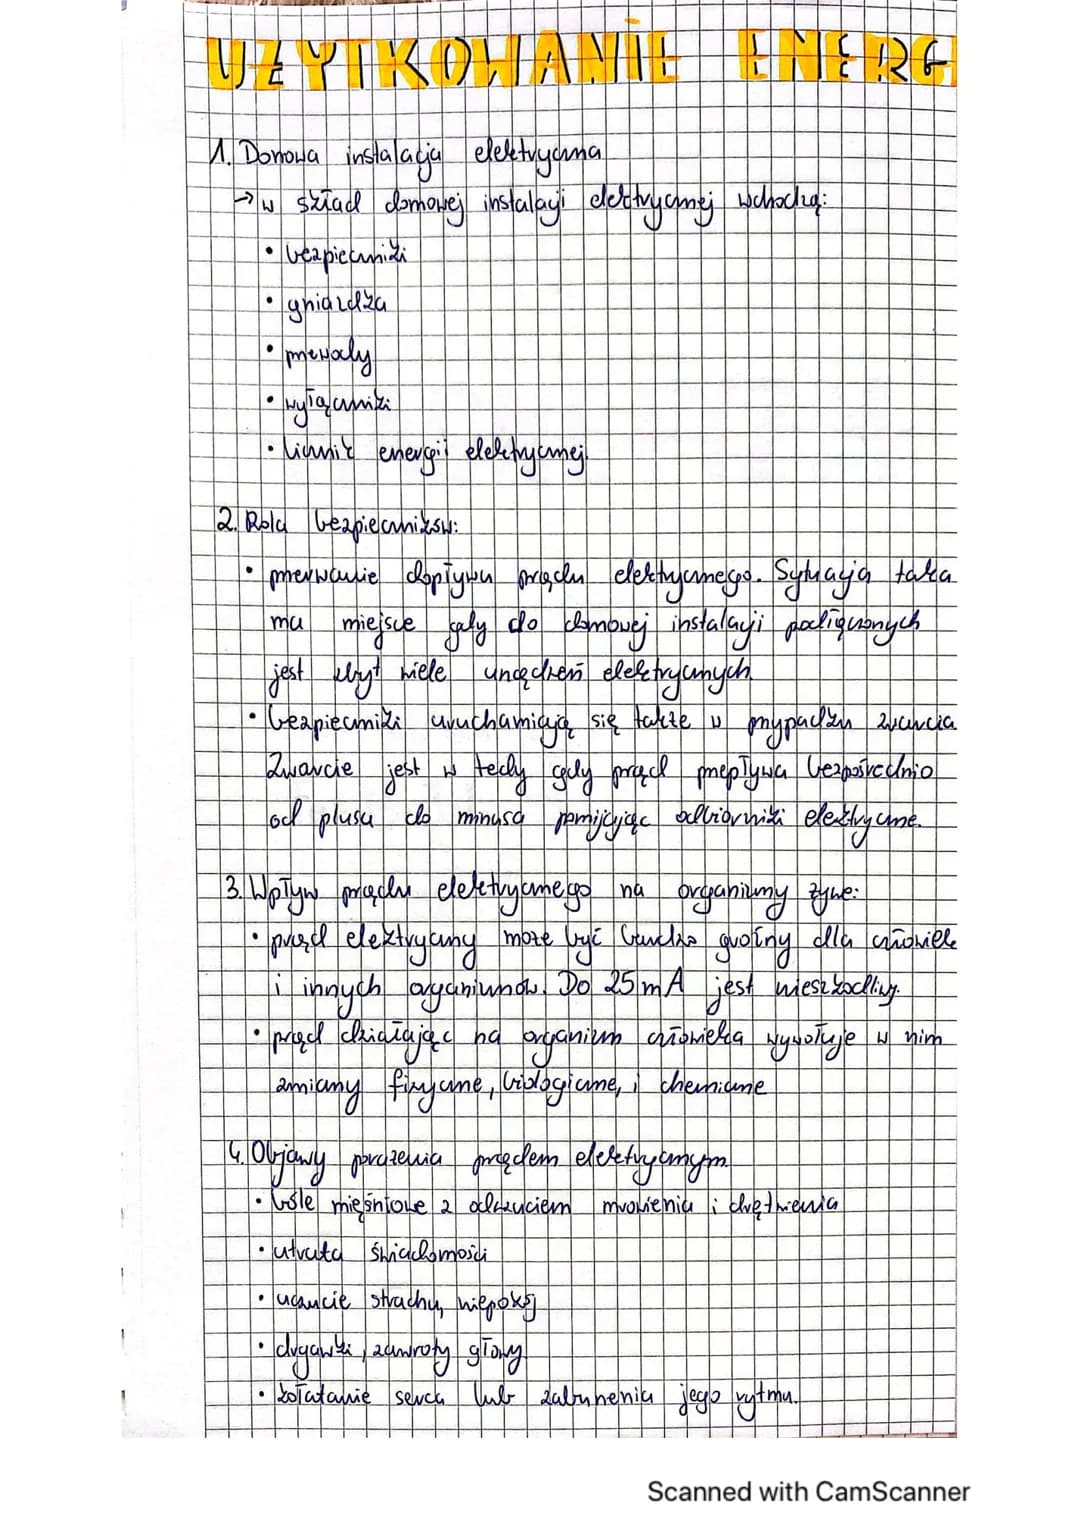 UŻYTKOWANIE ENERG
1. Domowa instalacja elektryczna
→ w skład domowej instalacji elektrycznej wchodzą:
• bezpieczniki
• gniazdka
• przewody
• wyłączniki
• licznik energii elektrycznej.
2. Rola bezpieczników:
• przerwanie dopływu prądu elektrycznego. Sytuacja taka
ma miejsce gdy do domowej instalacji podłączonych
jest zbyt wiele urządzeń elektrycznych.
• bezpieczniki uruchamiają się także w przypadku zwarcia
Zwarcie jest w tedy gdy prąd przepływa bezpośrednio
od plusa do minusa pomijając odbiorniki elektryczne.
3. Wpływ prądu elektrycznego na organizmy żywe:
• prąd elektryczny może być bardzo groźny dla człowieka
i innych organizmów. Do 25 mA jest nieszkodliwy.
• prąd działając na organizm człowieka wywołuje w nim
zmiany fizyczne, biologiczne, i chemiczne
4. Objawy porażenia prądem elektrycznym.
• bóle mięśniowe z odczuciem mrowienia i drętwienia
• utrata świadomości
• uczucie strachu, niepokój
• drgawki, zawroty głowy
• kołatanie serca lub zaburzenia jego rytmu.
Scanned with CamScanner